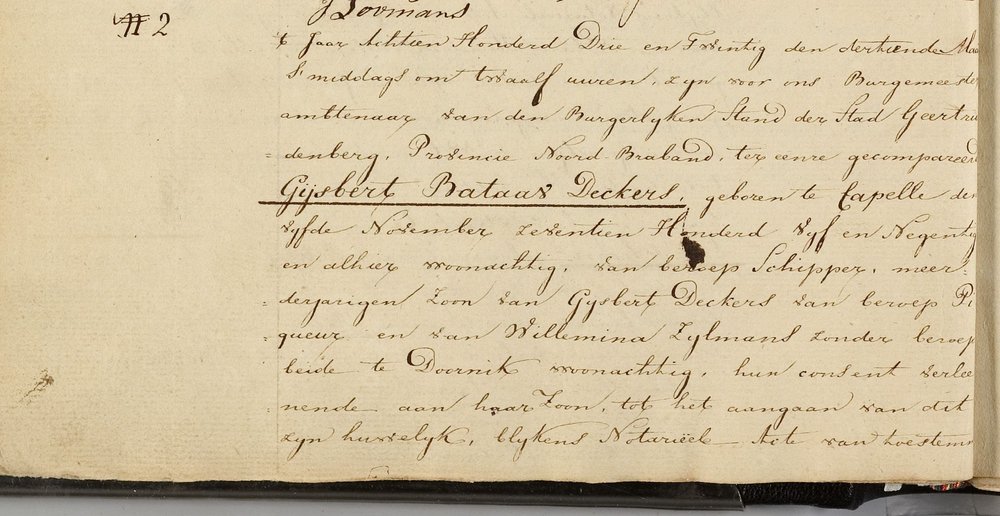 J Loomans
N 2
t Jaar Achtien Honderd Drie en Twintig den dertiende Maa
S'middags om twaalf uuren, zyn voor ons Burgemeester
ambtenaar van den Burgerlyken Stand der Stad Geertrui
denberg, Provincie Noord-Braband, ter eenre gecompareerd
Gijsbert Bataav Deckers, geboren te Capelle den
vyfde November zeventien Honderd vyf en Negentig
en alhier woonachtig, van beroep Schipper, meer-
derjarigen Zoon van Gysbert Deckers van beroep Pi
queur en van Willemina Zylmans zonder beroep
beide te Doornik woonachtig, hun consent verlee
nende aan haar Zoon, tot het aangaan van dit
zyn huwelyk, blykens Notariëel Acte van toestemm